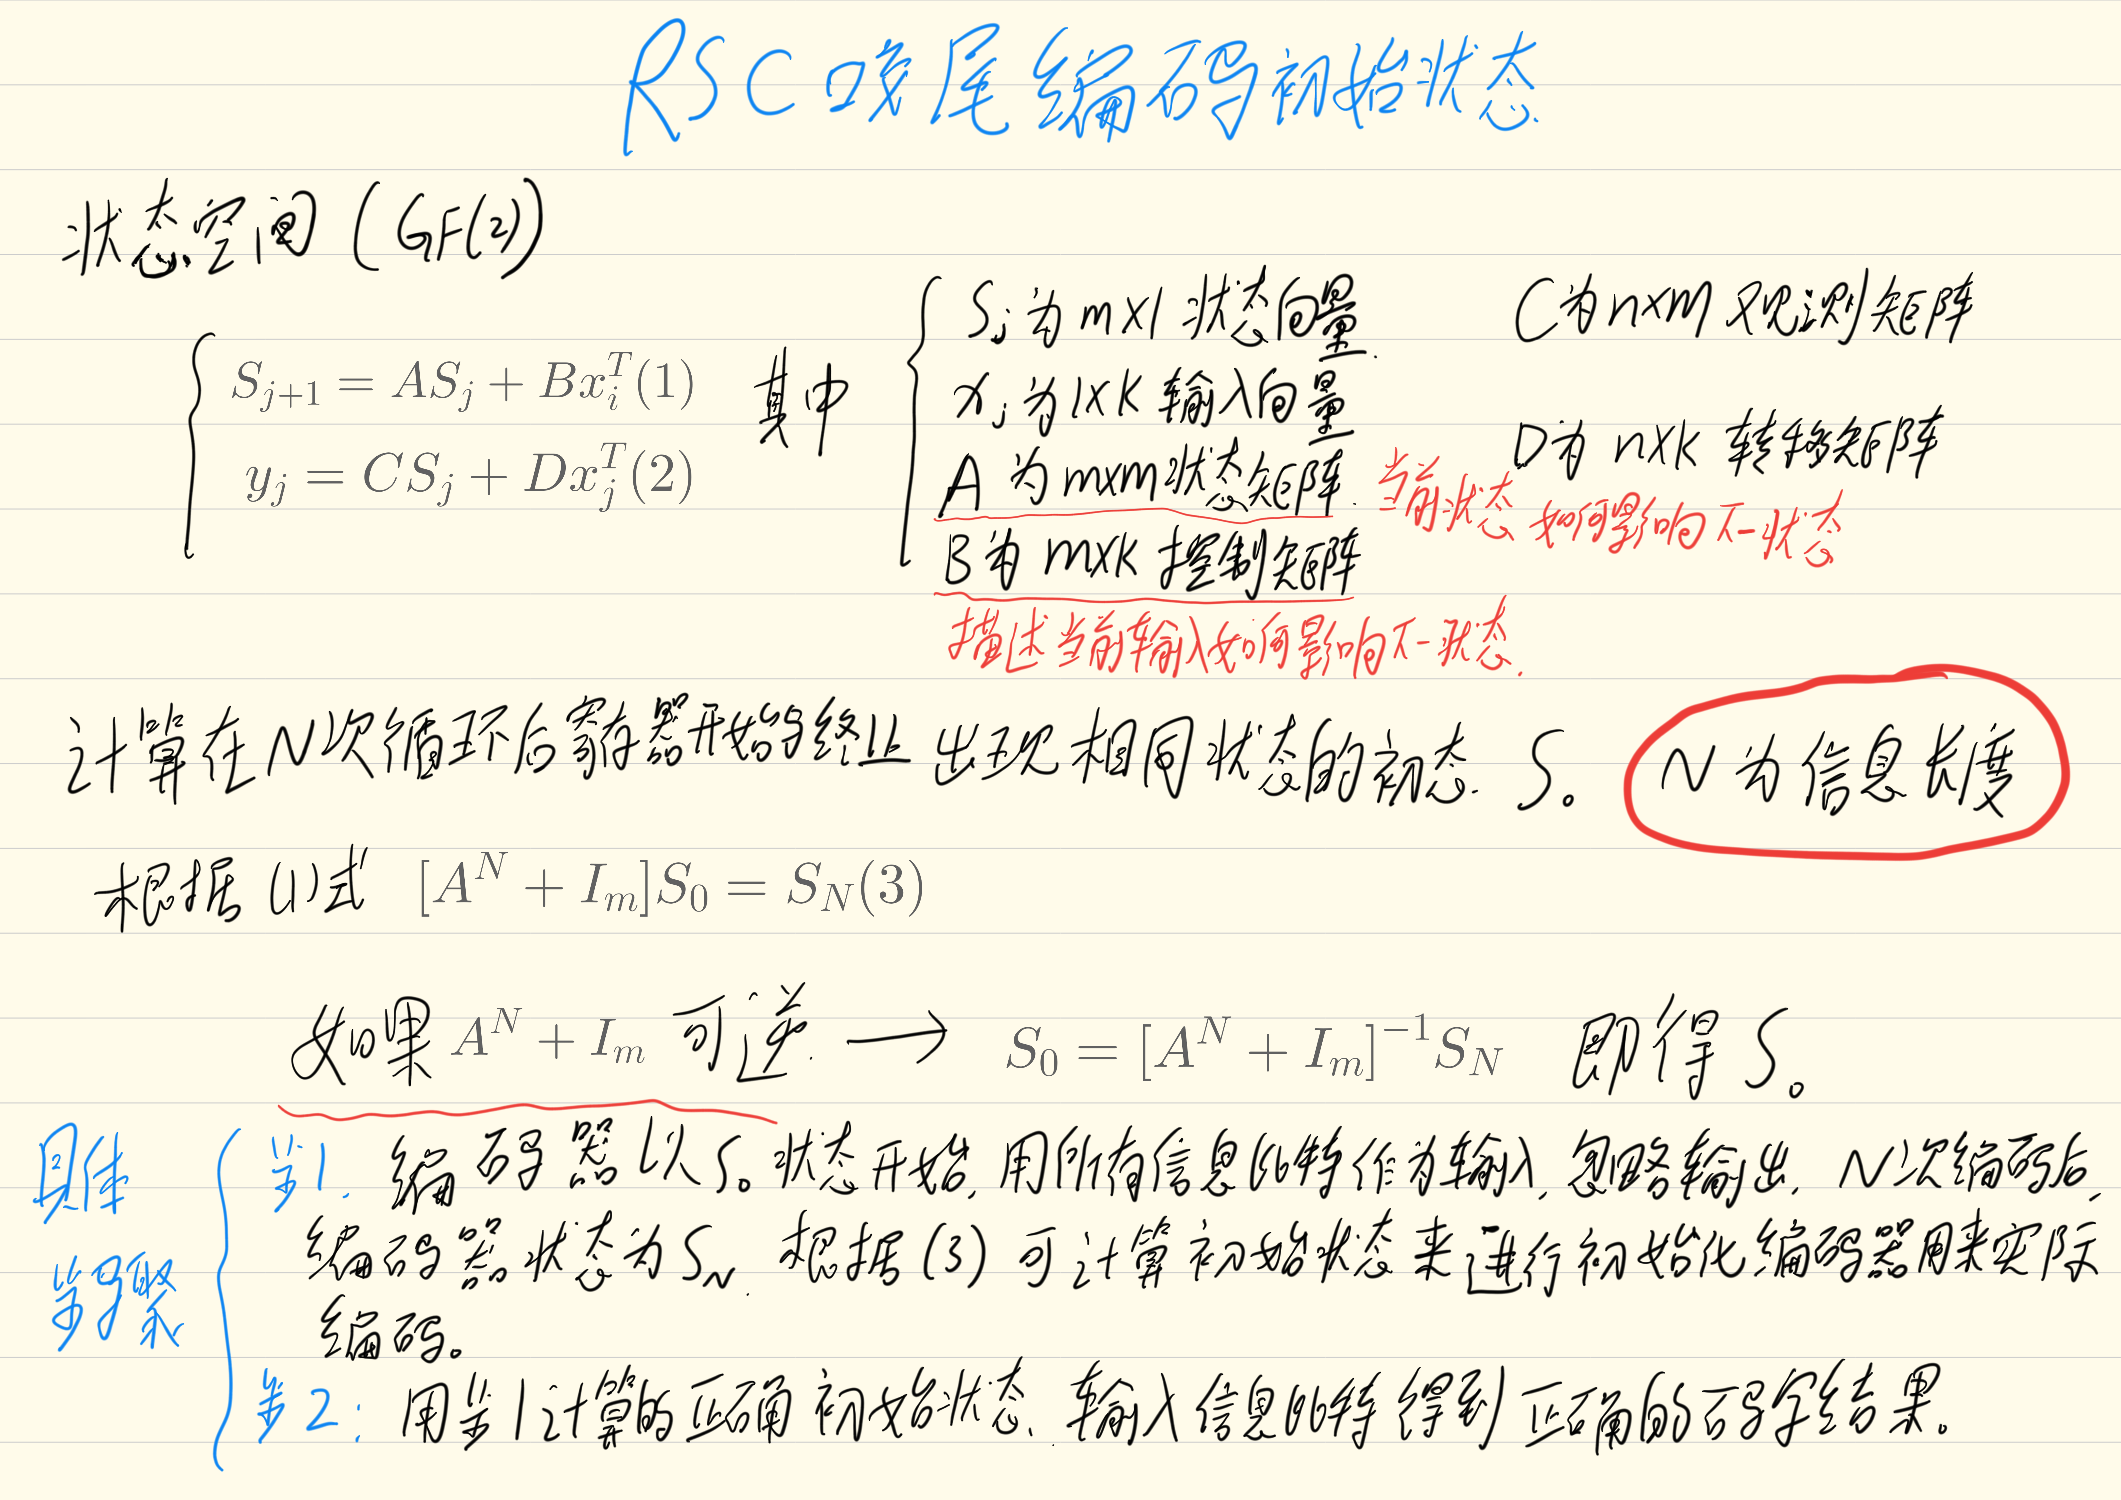 RSC咬尾编码初始状态
状态空间(GF(2))
S_{j+1} = AS_j + Bx_i^T(1)
y_j = CS_j + Dx_j^T(2)
其中
S_j为m×1状态向量.
x_j为1×K输入向量
A为m×m状态矩阵. 当前状态如何影响下一状态
B为m×k控制矩阵
描述当前输入如何影响下一状态.
C为n×m观测矩阵
D为n×k转移矩阵
计算在N次循环后寄存器开始与终止出现相同状态的初态 S₀ N为信息长度
根据(1)式 [A^N + I_m]S_0 = S_N(3)
如果 A^N + I_m 可逆. → S_0 = [A^N + I_m]^{-1}S_N 即得S₀
具体步骤
步1. 编码器以S₀状态开始,用所有信息比特作为输入,忽略输出,N次编码后,
编码器状态为S_N. 根据(3)可计算初始状态来进行初始化编码器用来实际
编码。
步2: 用步1计算的正确初始状态、输入信息比特得到正确的码字结果。